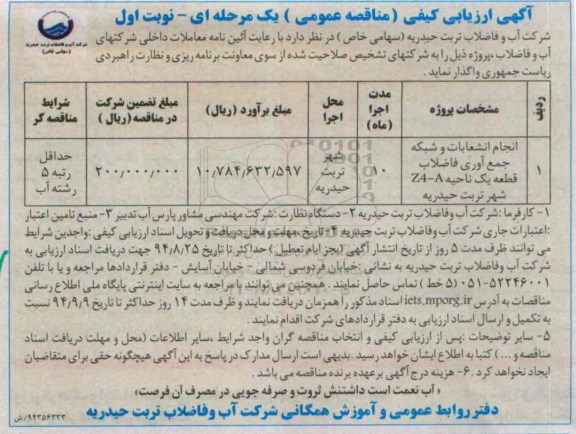 آگهی ارزیابی کیفی (مناقصه عمومی) یک مرحله ای - نوبت اول
شرکت آب و فاضلاب تربت حیدریه
(سهامی خاص)
شرکت آب و فاضلاب تربت حیدریه (سهامی خاص) در نظر دارد با رعایت آئین نامه معاملات داخلی شرکتهای
آب و فاضلاب، پروژه ذیل را به شرکتهای تشخیص صلاحیت شده از سوی معاونت برنامه ریزی و نظارت راهبردی
ریاست جمهوری واگذار نماید.
ردیف | مشخصات پروژه | مدت اجرا (ماه) | محل اجرا | مبلغ برآورد (ریال) | مبلغ تضمین شرکت در مناقصه (ریال) | شرایط مناقصه گر
۱ | انجام انشعابات و شبکه جمع آوری فاضلاب قطعه یک ناحیه Z4-A شهر تربت حیدریه | ۱۰ | شهر تربت حیدریه | ۱۰,۷۸۴,۶۳۲,۵۹۷ | ۲۰۰,۰۰۰,۰۰۰ | حداقل رتبه ۵ رشته آب
۱- کارفرما: شرکت آب وفاضلاب تربت حیدریه ۲- دستگاه نظارت: شرکت مهندسی مشاور پارس آب تدبیر ۳- منبع تامین اعتبار
: اعتبارات جاری شرکت آب وفاضلاب تربت حیدریه ۴- تاریخ، مهلت و محل دریافت و تحویل اسناد ارزیابی کیفی: واجدین شرایط
می توانند ظرف مدت ۵ روز از تاریخ انتشار آگهی (بجز ایام تعطیل) حداکثر تا تاریخ ۹۴/۸/۲۵ جهت دریافت اسناد ارزیابی به
شرکت آب وفاضلاب تربت حیدریه به نشانی: خیابان فردوسی شمالی - خیابان آسایش - دفتر قراردادها مراجعه و یا با تلفن
۵۲۲۴۶۰۰۱-۰۵۱ (۵ خط) تماس حاصل نمایند. همچنین می توانند با مراجعه به سایت اینترنتی پایگاه ملی اطلاع رسانی
مناقصات به آدرس iets.mporg.ir اسناد مذکور را همزمان دریافت نمایند و ظرف مدت ۱۴ روز حداکثر تا تاریخ ۹۴/۹/۹ نسبت
به تکمیل و ارسال اسناد ارزیابی به دفتر قراردادهای شرکت اقدام نمایند.
۵- سایر توضیحات: پس از ارزیابی کیفی و انتخاب مناقصه گران واجد شرایط، سایر اطلاعات (محل و مهلت دریافت اسناد
مناقصه و ...) کتبا به اطلاع ایشان خواهد رسید. بدیهی است ارسال مدارک در پاسخ به این آگهی هیچگونه حقی برای متقاضیان
ایجاد نخواهد کرد. ۶- هزینه درج آگهی برعهده برنده مناقصه می باشد.
«آب نعمت است داشتنش ثروت و صرفه جویی در مصرف آن فرصت»
دفتر روابط عمومی و آموزش همگانی شرکت آب وفاضلاب تربت حیدریه
۹۴۳۵۶۳۳۳/ش